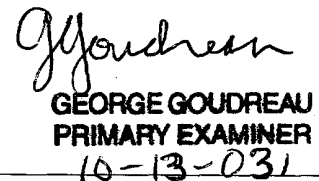 GGoudreau
GEORGE GOUDREAU
PRIMARY EXAMINER
10-13-031